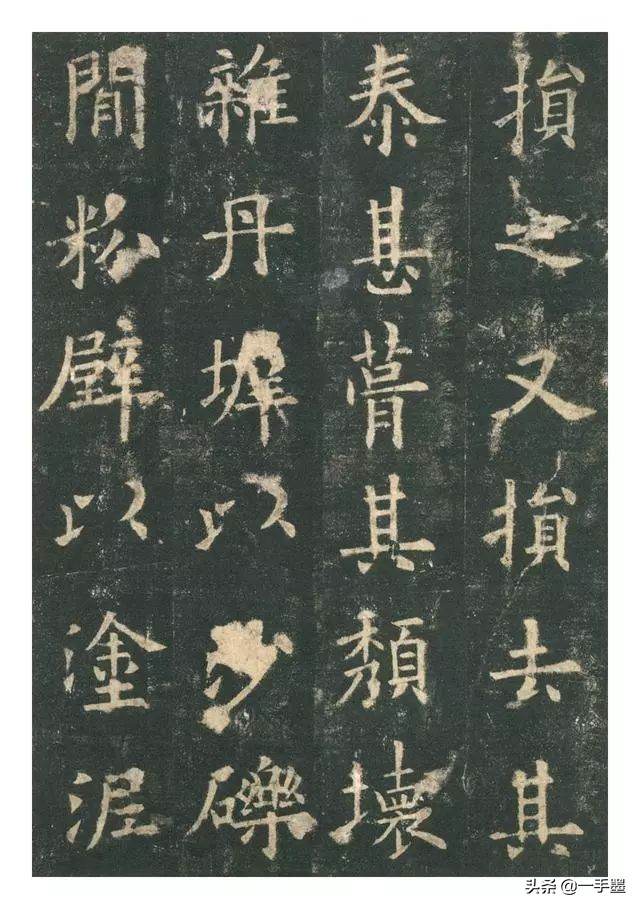 損之又損去其
泰甚葺其頽壞
雜丹墀以沙礫
閒粉壁以塗泥
头条 @一手墨